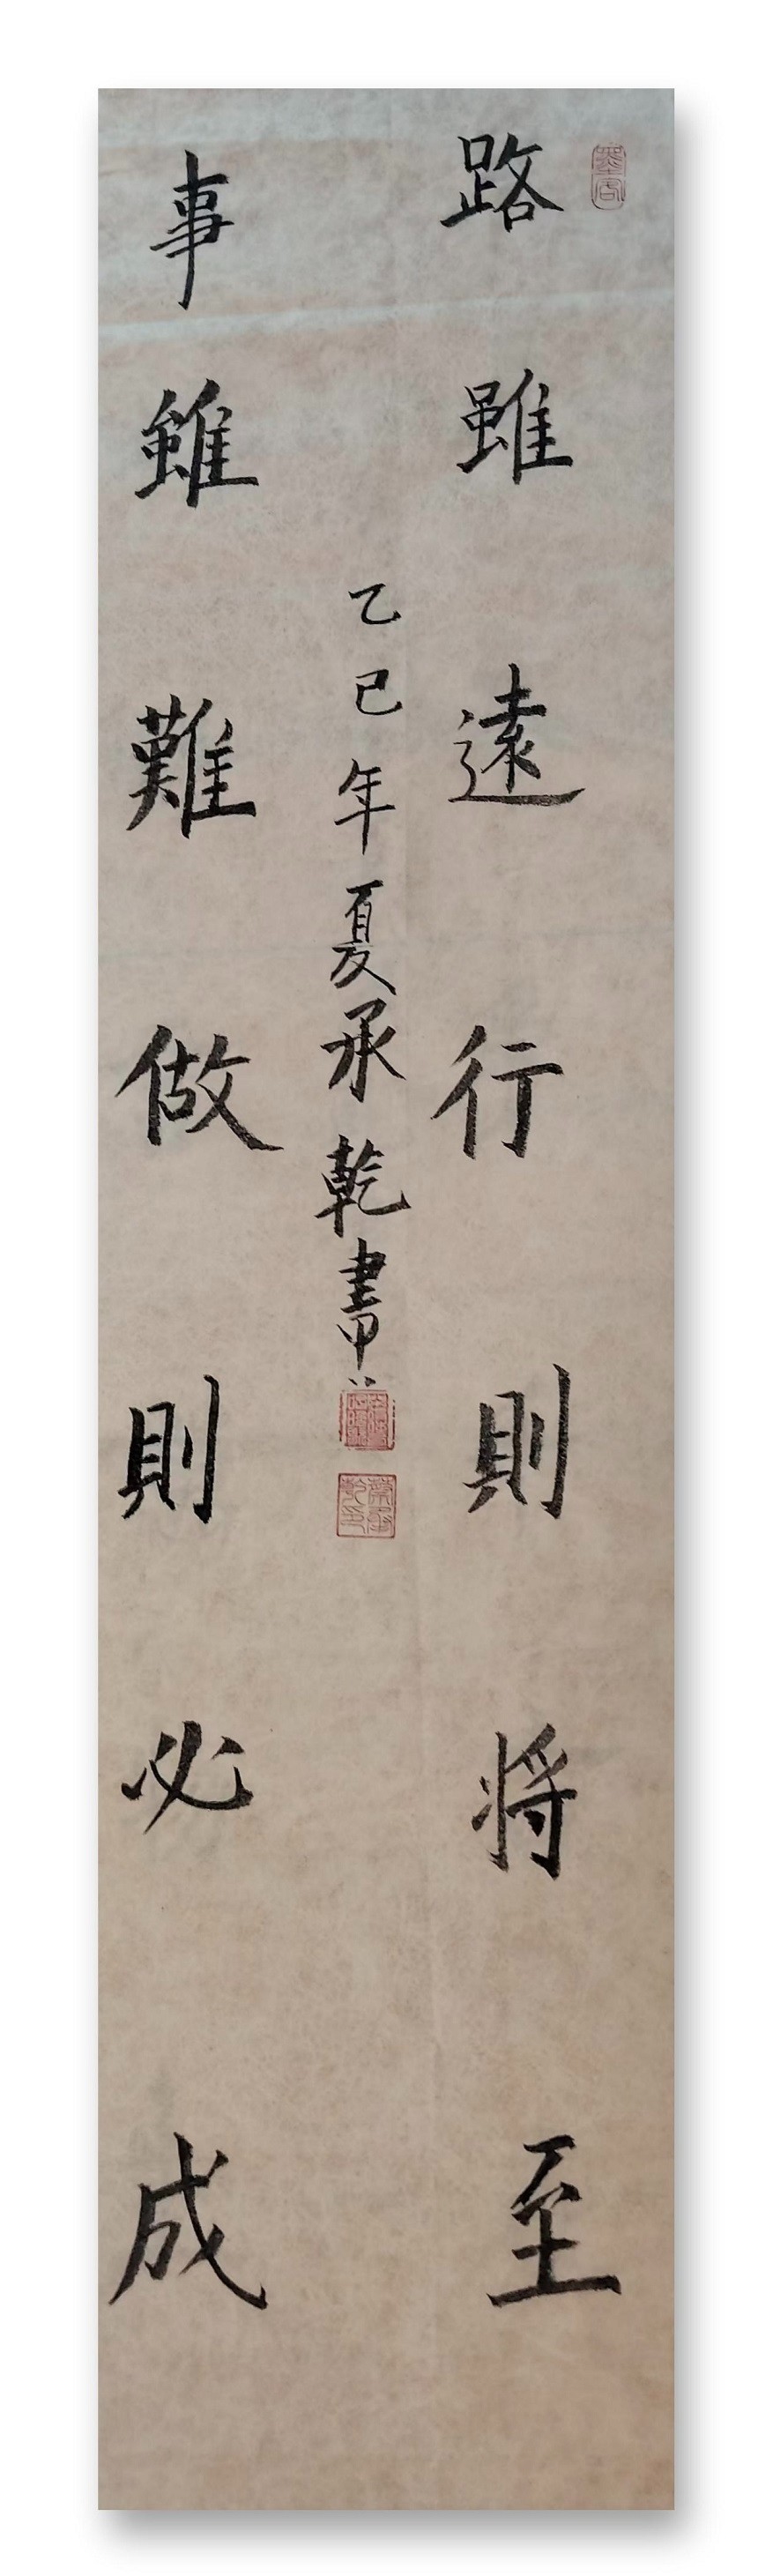 路雖遠行則将至
乙巳年夏承乾書
事雖難做則必成